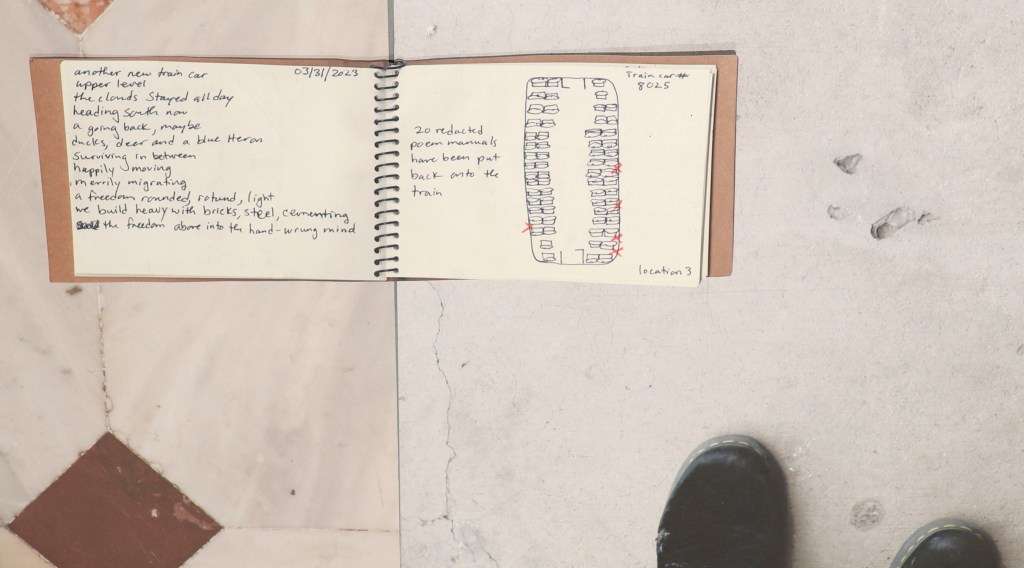 another new train car
03/31/2023
upper level
the clouds stayed all day
heading south now
a going back, maybe
ducks, deer and a blue Heron
surviving in between
happily moving
merrily migrating
a freedom rounded, rotund, light
we build heavy with bricks, steel, cementing
the freedom above into the hand-wrung mind
20 redacted
poem manuals
have been put
back onto the
train
Train car #
8025
location 3